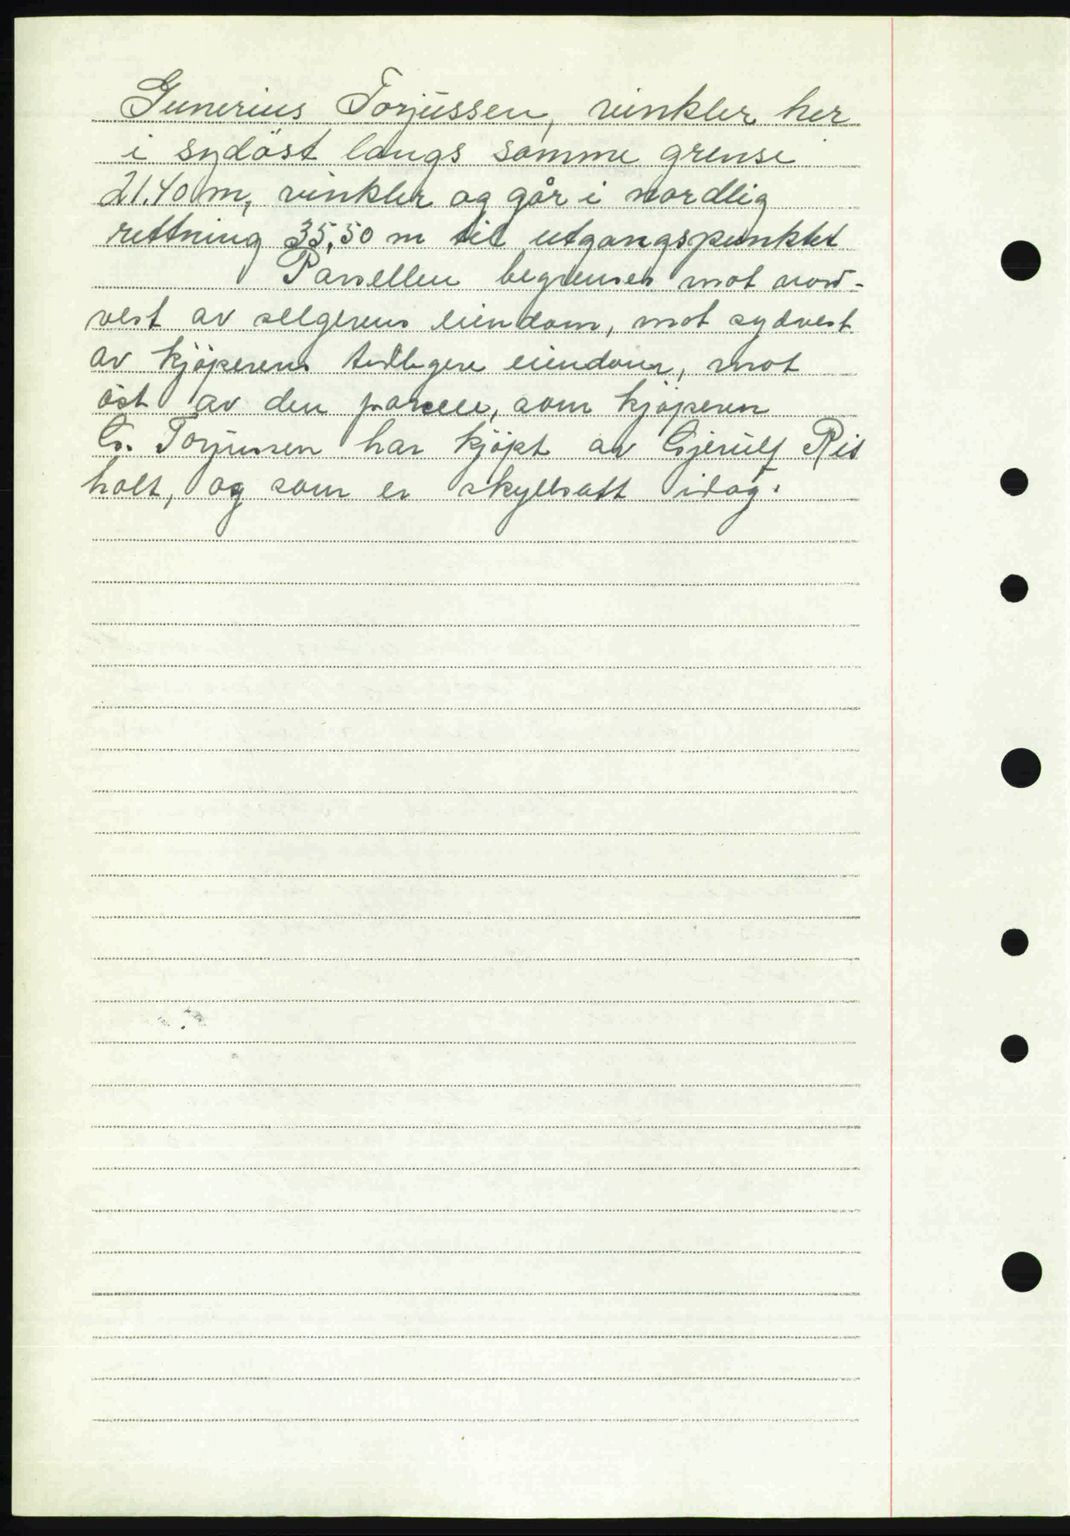 Gunerius Torjussen, vinkler her
i sydöst langs samme grense
21.40 m, vinkler og går i nordlig
rettning 35,50 m til utgangspunktet
Parsellen begrenses mot nord-
vest av selgerens eiendom, mot sydvest
av kjöperens tidligere eiendom, mot
öst av den parsell, som kjöperen
G. Torjussen har kjöpt av Gjerulf Ris
holt, og som er skyllsatt idag.